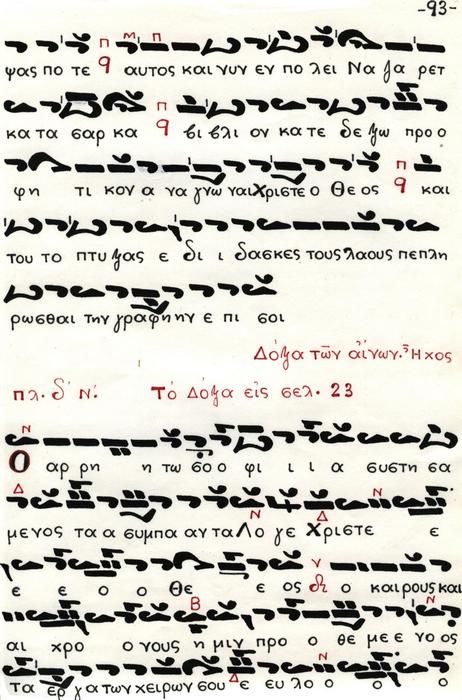 -93-
ψας πο τε αυτος και νυν εν πο λει Να ζα ρετ
κα τα σαρ κα βι βλι ον κα τε δε ξω προ ο
φη τι κον α να γνω ναι Χριστε ο Θε ος και
του το πτυ ξας ε δι ι δασκες τους λαους πεπλη
ρωσθαι την γραφη ην ε πι σοι
Δόξα τῶν αἴνων. Ἦχος
πλ. δ' Νη. Τό Δόξα εἰς σελ. 23
Ο αρ ρη η τω σο ο φι ι ι α συστη σα
μενος τα α συμπα αν τα Λο γε Χριστε ε
ε ε ο ο Θε ε ος ο καιρους και
αι χρο ο νους η μιν προ ο θε με ε νο ος
τα ερ γα των χειρων σου ε ευ λο ο ο ο ο